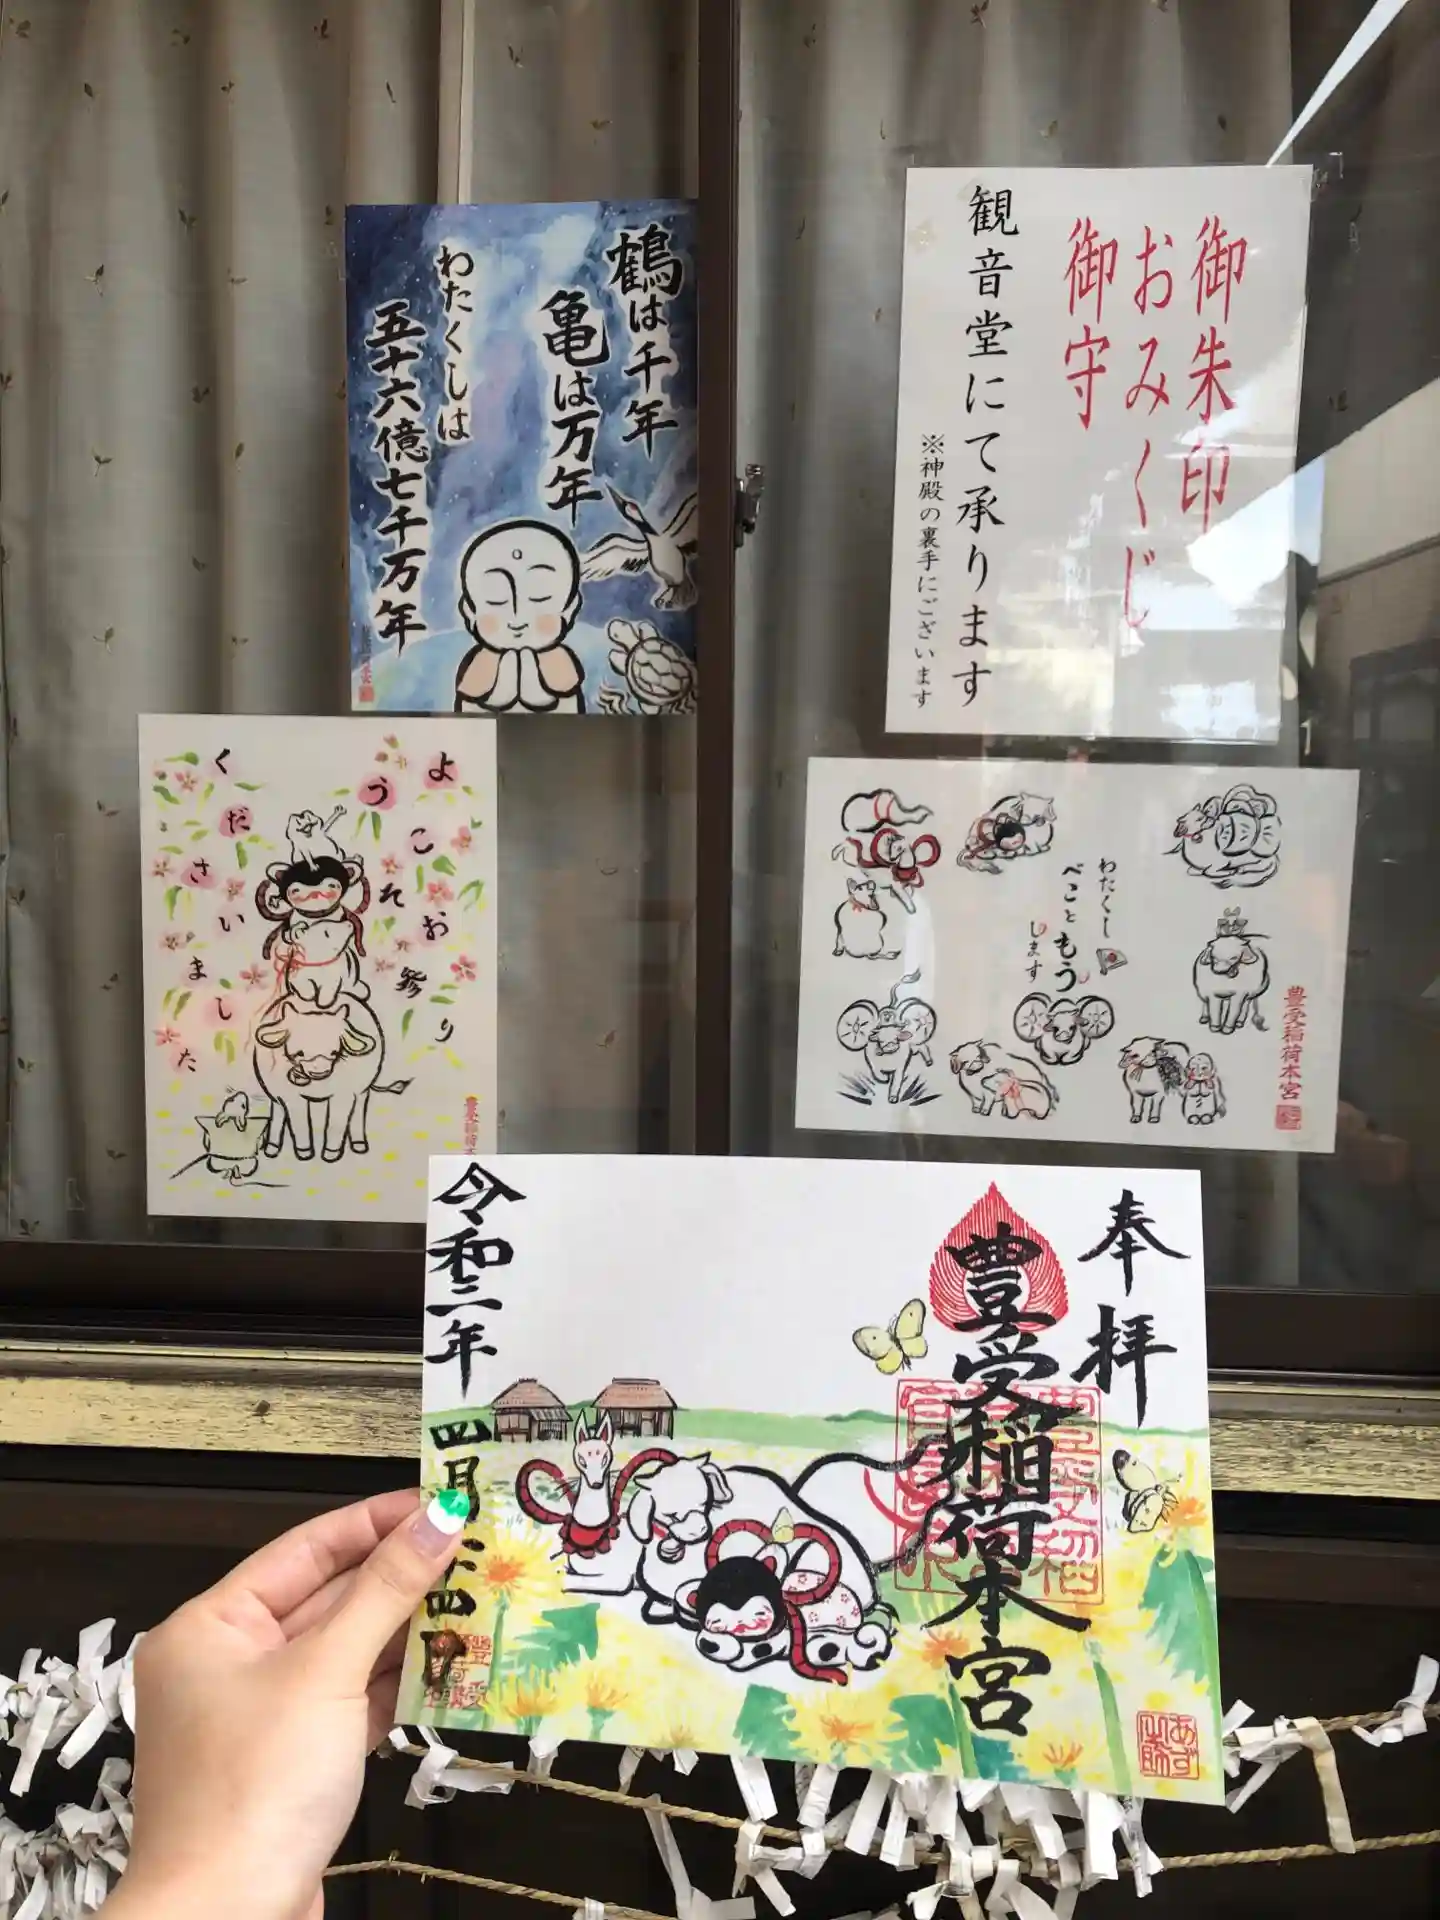 鶴は千年
亀は万年
わたくしは
五十六億七千万年
御朱印
おみくじ
御守
観音堂にて承ります
※神殿の裏手にございます
ようこそお参り
くださいました
わたくし
べこと
もう
します
豊受稲荷本宮
奉拝
豊受稲荷本宮
令和二年
四月